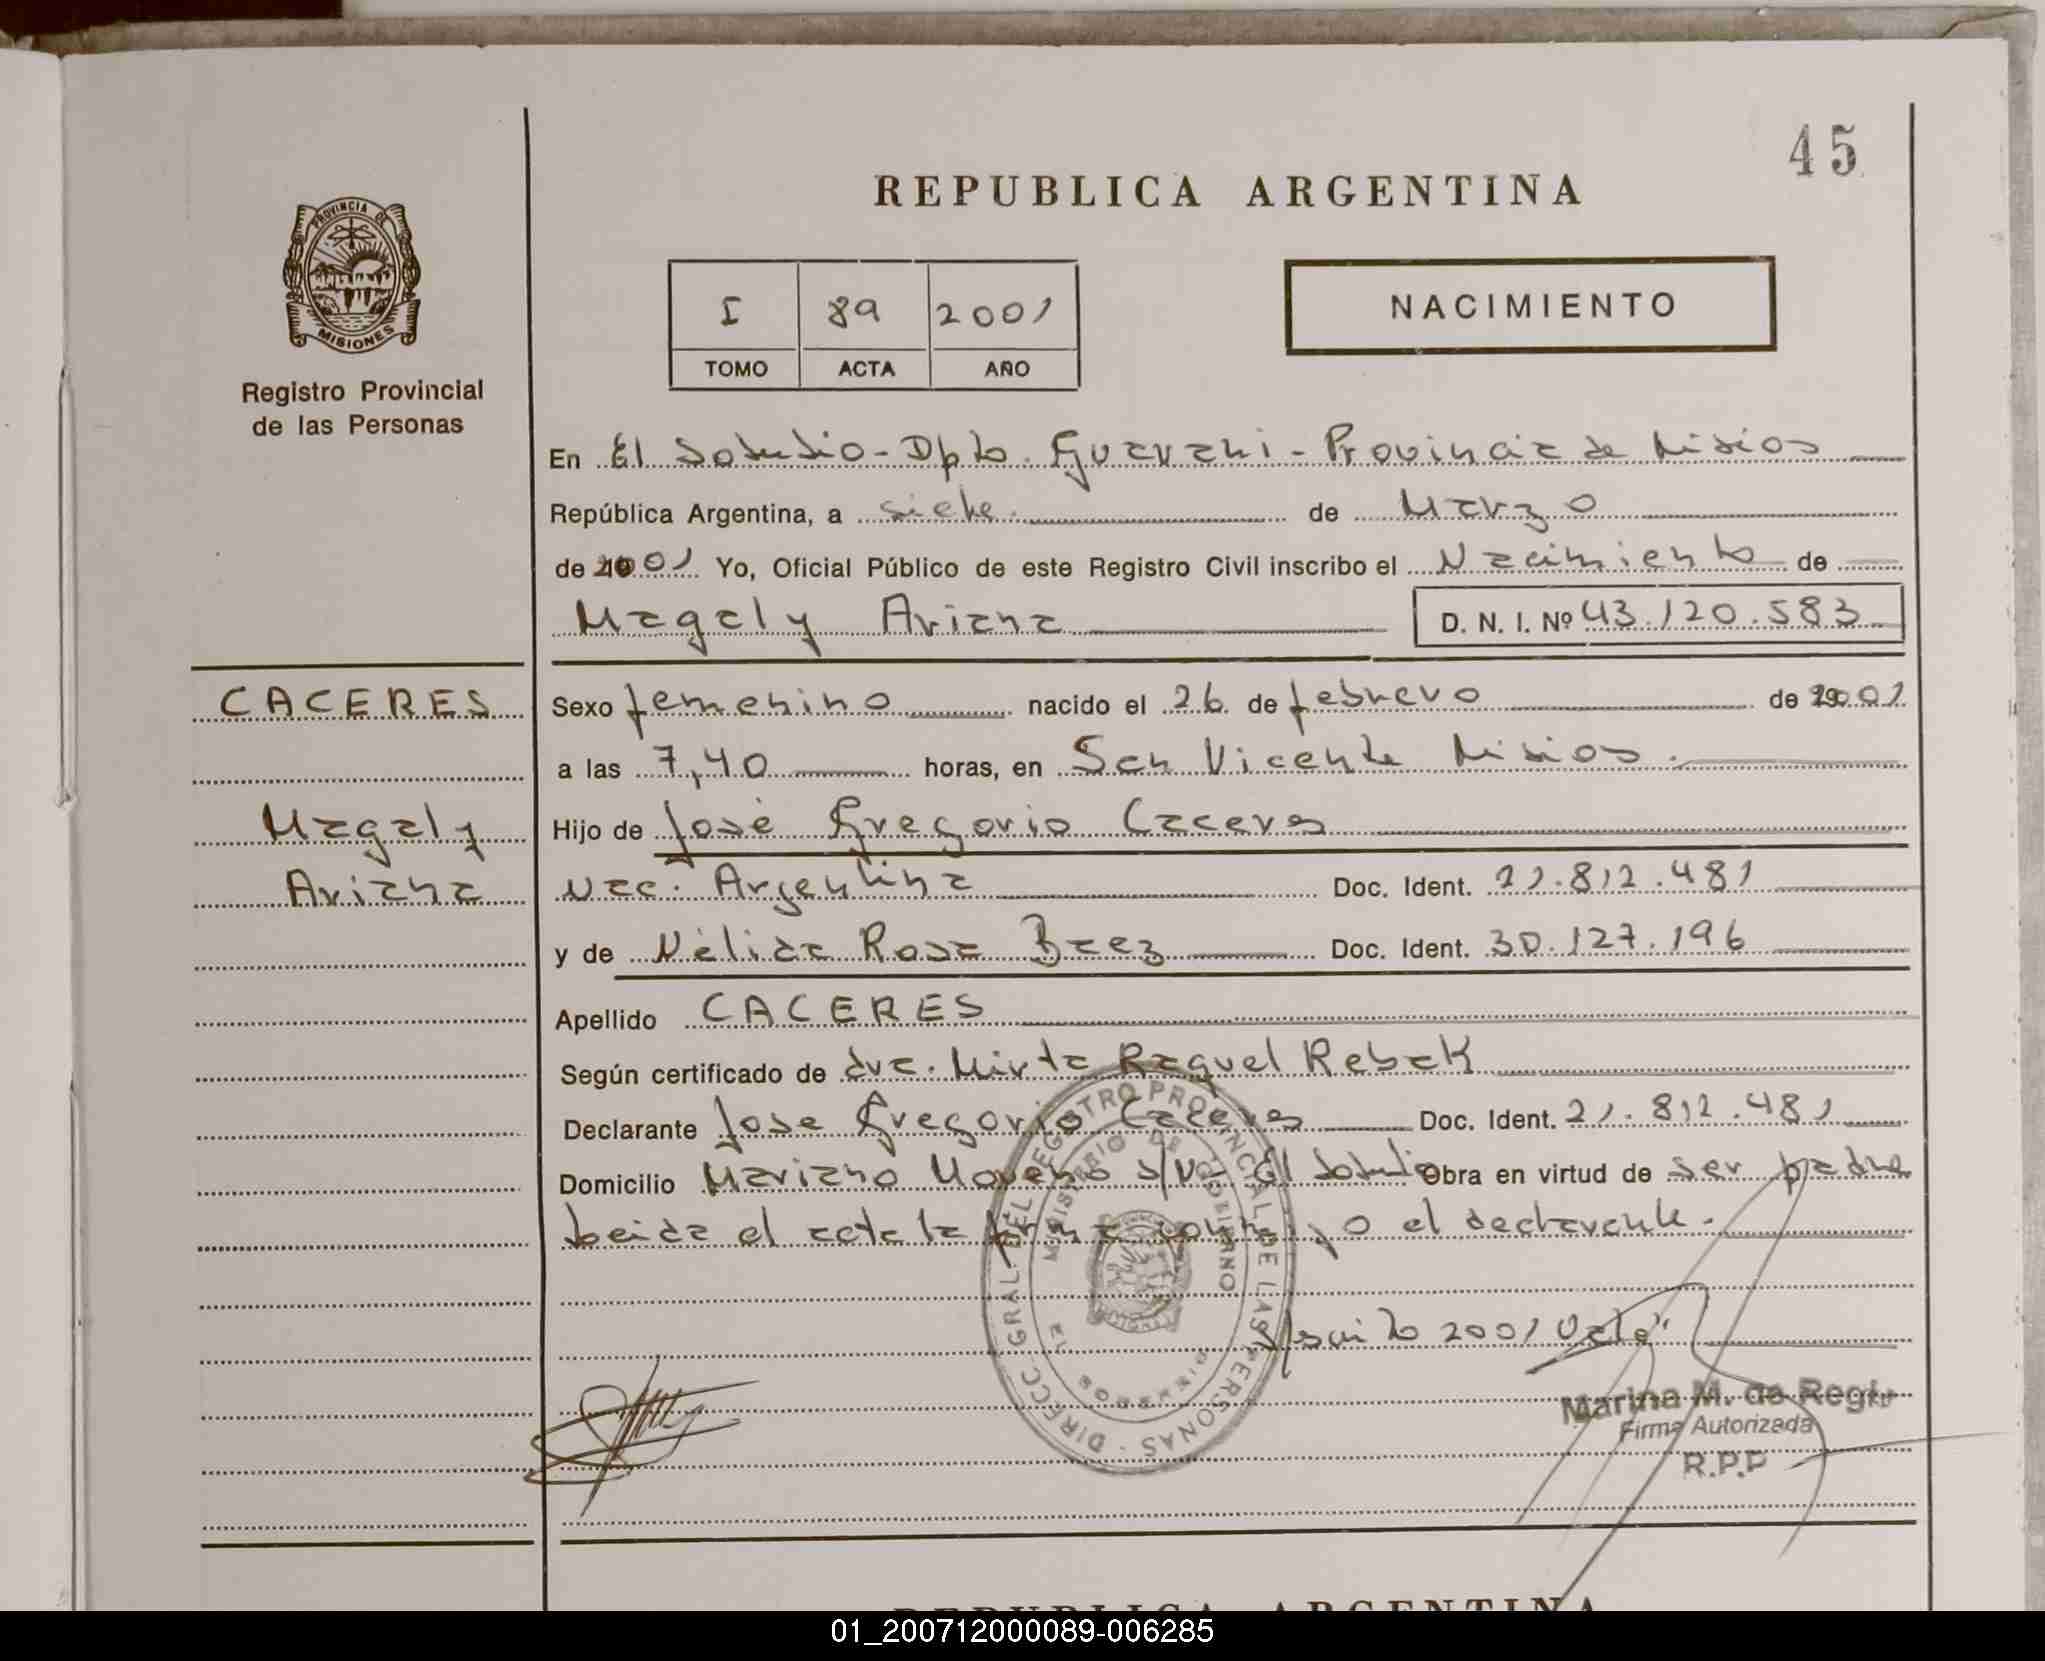 45
REPUBLICA ARGENTINA
PROVINCIA DE
MISIONES
Registro Provincial
de las Personas
I 89 2001
TOMO ACTA AÑO
NACIMIENTO
En El Soberbio - Dpto. Guarani - Provincia de Misiones
República Argentina, a siete de Marzo
de 2001 Yo, Oficial Público de este Registro Civil inscribo el Nacimiento de
Magaly Ariana D. N. I. Nº 43.120.583
CACERES
Sexo femenino nacido el 26 de febrero de 2001
a las 7,40 horas, en San Vicente Misiones.
Magaly
Hijo de José Gregorio Caceres
Ariana
Nac. Argentina Doc. Ident. 21.812.481
y de Nélida Rosa Baez Doc. Ident. 30.127.196
Apellido CACERES
Según certificado de dra. Mirta Raquel Rebak
Declarante Jose Gregorio Caceres Doc. Ident. 21.812.481
Domicilio Mariano Moreno s/Nº El Soberbio Obra en virtud de ser padre
Leida el acta la firma conmigo el declarante.
DIRECC. GRAL. DEL REGISTRO PROVINCIAL DE LAS PERSONAS
MINISTERIO DE GOBIERNO
EL SOBERBIO
2001 Vale"
Marina M. de Regis
Firma Autorizada
R.P.P
REPUBLICA ARGENTINA
01_200712000089-006285